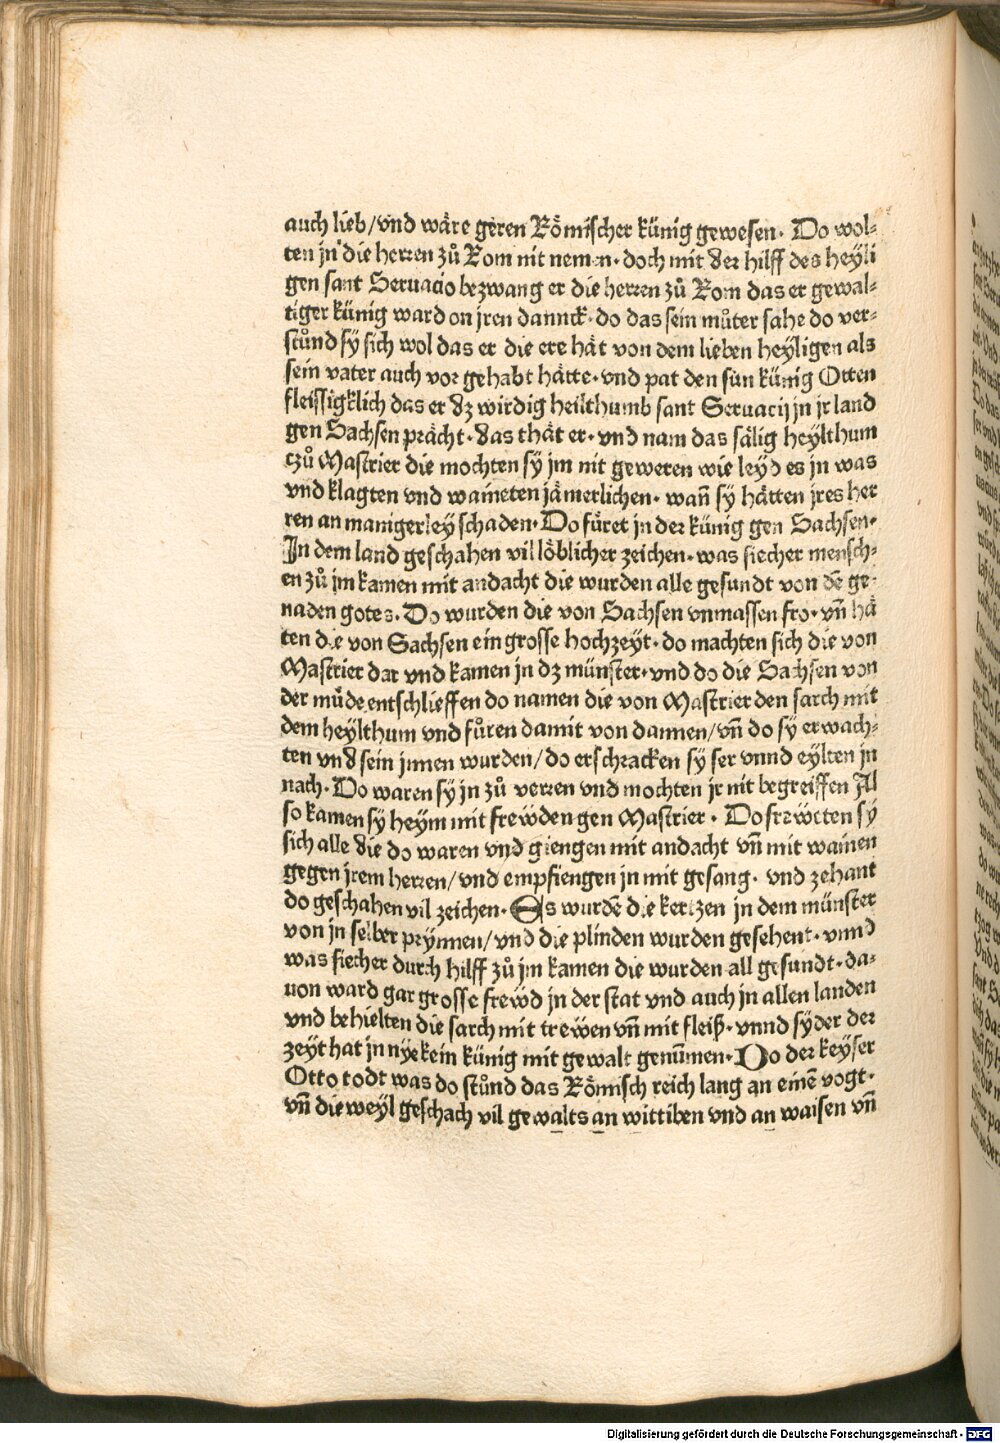 auch lieb/vnd wäre geren Römischer künig gewesen. Do wol-
ten jn die herren zů Rom nit nemen. doch mit der hilff des heyli
gen sant Seruacio bezwang er die herren zů Rom das er gewal-
tiger künig ward on jren dannck. do das sein můter sahe do ver-
stůnd sy sich wol das er die ere hät von dem lieben heyligen als
sein vater auch vor gehabt hätte. vnd pat den sun künig Otten
fleissigklich das er dz wirdig heilthumb sant Seruacij jn jr land
gen Sachsen prächt. das thät er. vnd nam das sälig heylthum
czů Mastrier die mochten sy jm nit geweren wie leyd es jn was
vnd klagten vnd waineten jämerlichen. wañ sy hätten jres her
ren an manigerley schaden. Do füret jn der künig gen Sachsen.
In dem land geschahen vil löblicher zeichen. was siecher mensch-
en zů jm kamen mit andacht die wurden alle gesundt von dē ge-
naden gotes. Do wurden die von Sachsen vnmassen fro. vñ hä
ten die von Sachsen ein grosse hochzeyt. do machten sich die von
Mastrier dar vnd kamen jn dz münster. vnd do die Sachsen von
der müde entschlieffen do namen die von Mastrier den sarch mit
dem heylthum vnd fůren damit von dannen/vñ do sy erwach-
ten vnd sein jnnen wurden/do erschracken sy ser vnnd eylten jn
nach. Do waren sy jn zů verren vnd mochten jr nit begreiffen Al
so kamen sy heym mit frewden gen Mastrier. Do frewten sy
sich alle die do waren vnd giengen mit andacht vñ mit wainen
gegen jrem herren/vnd empfiengen jn mit gesang. vnd zehant
do geschahen vil zeichen. Es wurdē die kertzen jn dem münster
von jn selber prynnen/vnd die plinden wurden gesehent. vnnd
was siecher durch hilff zů jm kamen die wurden all gesundt. da-
uon ward gar grosse frewd jn der stat vnd auch jn allen landen
vnd behielten die sarch mit trewen vñ mit fleiß. vnnd syder der
zeyt hat jn nye kein künig mit gewalt genūmen. Do der keyser
Otto todt was do stůnd das Römisch reich lang an einē vogt.
vñ die weyl geschach vil gewalts an wittiben vnd an waisen vñ
Digitalisierung gefördert durch die Deutsche Forschungsgemeinschaft - DFG